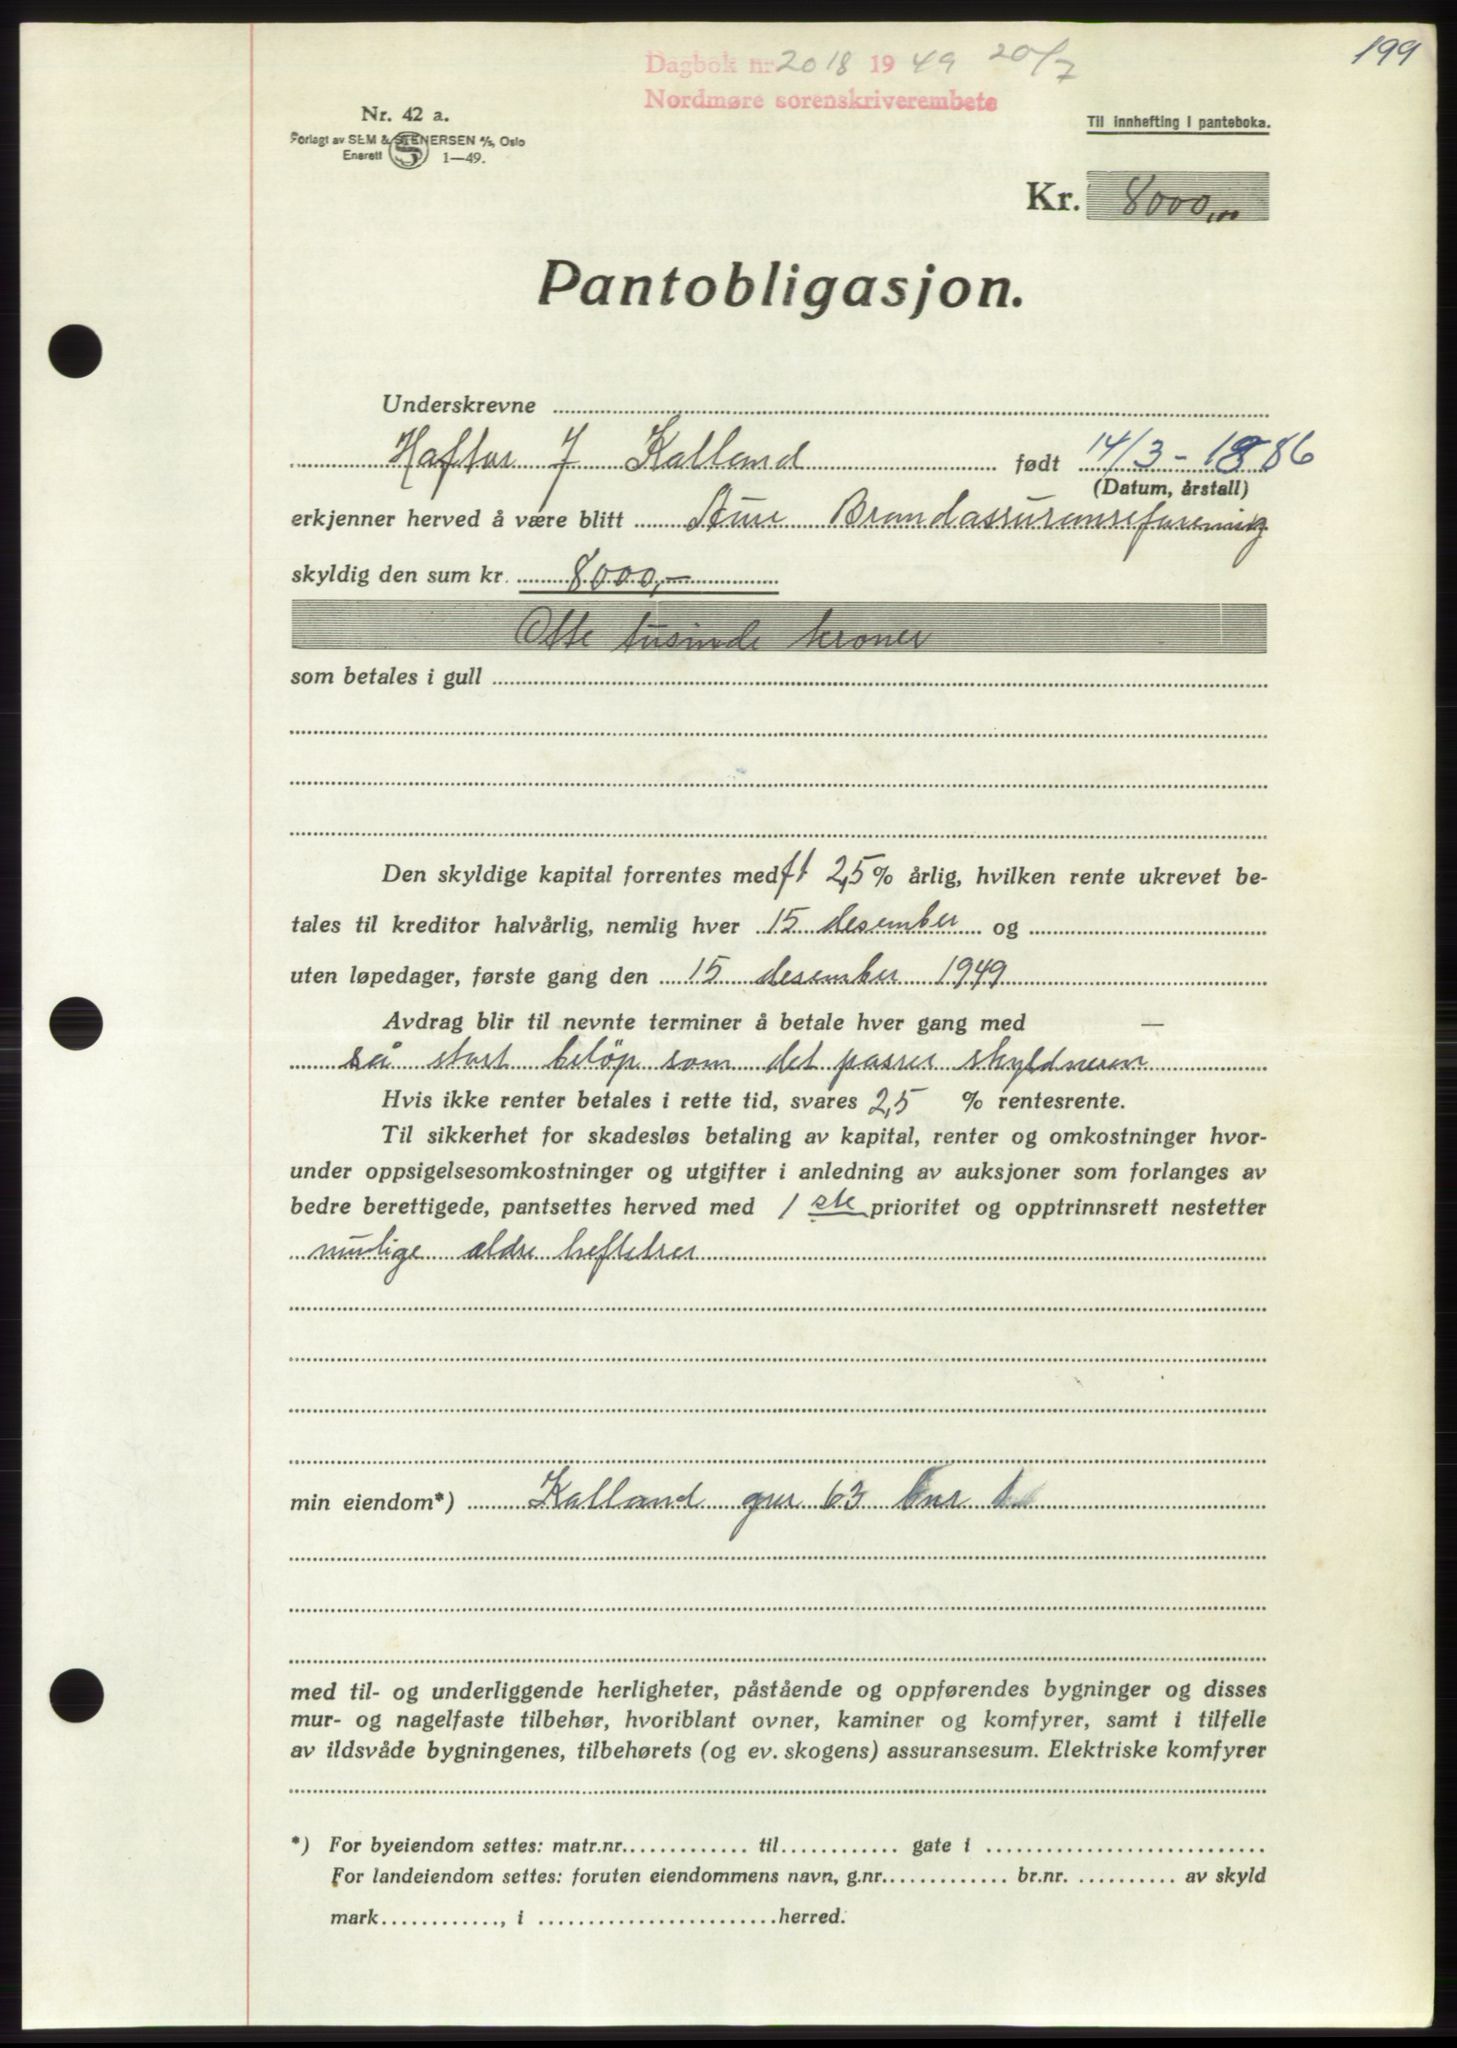 199
Dagbok nr 2018 1949 20/7
Nordmøre sorenskriverembete
Nr. 42 a.
Forlagt av SEM & STENERSEN A/S, Oslo
Enerett 1—49.
Til innhefting i panteboka.
Kr. 8000,00
Pantobligasjon.
Underskrevne
Haftor J Kalland født 14/3 - 1886
(Datum, årstall)
erkjenner herved å være blitt Aure Brandassuranseforening
skyldig den sum kr. 8000,-
Otte tusinde kroner
som betales i gull
Den skyldige kapital forrentes med ft 2,5 % årlig, hvilken rente ukrevet be-
tales til kreditor halvårlig, nemlig hver 15 desember og
uten løpedager, første gang den 15 desember 1949
Avdrag blir til nevnte terminer å betale hver gang med —
så stort beløp som det passer skyldneren
Hvis ikke renter betales i rette tid, svares 2,5 % rentesrente.
Til sikkerhet for skadesløs betaling av kapital, renter og omkostninger hvor-
under oppsigelsesomkostninger og utgifter i anledning av auksjoner som forlanges av
bedre berettigede, pantsettes herved med 1 ste prioritet og opptrinnsrett nestetter
mulige eldre heftelser
min eiendom*) Kalland gnr 63 bnr
med til- og underliggende herligheter, påstående og oppførendes bygninger og disses
mur- og nagelfaste tilbehør, hvoriblant ovner, kaminer og komfyrer, samt i tilfelle
av ildsvåde bygningenes, tilbehørets (og ev. skogens) assuransesum. Elektriske komfyrer
*) For byeiendom settes: matr.nr. til gate i
For landeiendom settes: foruten eiendommens navn, g.nr. br.nr. av skyld
mark , i herred.